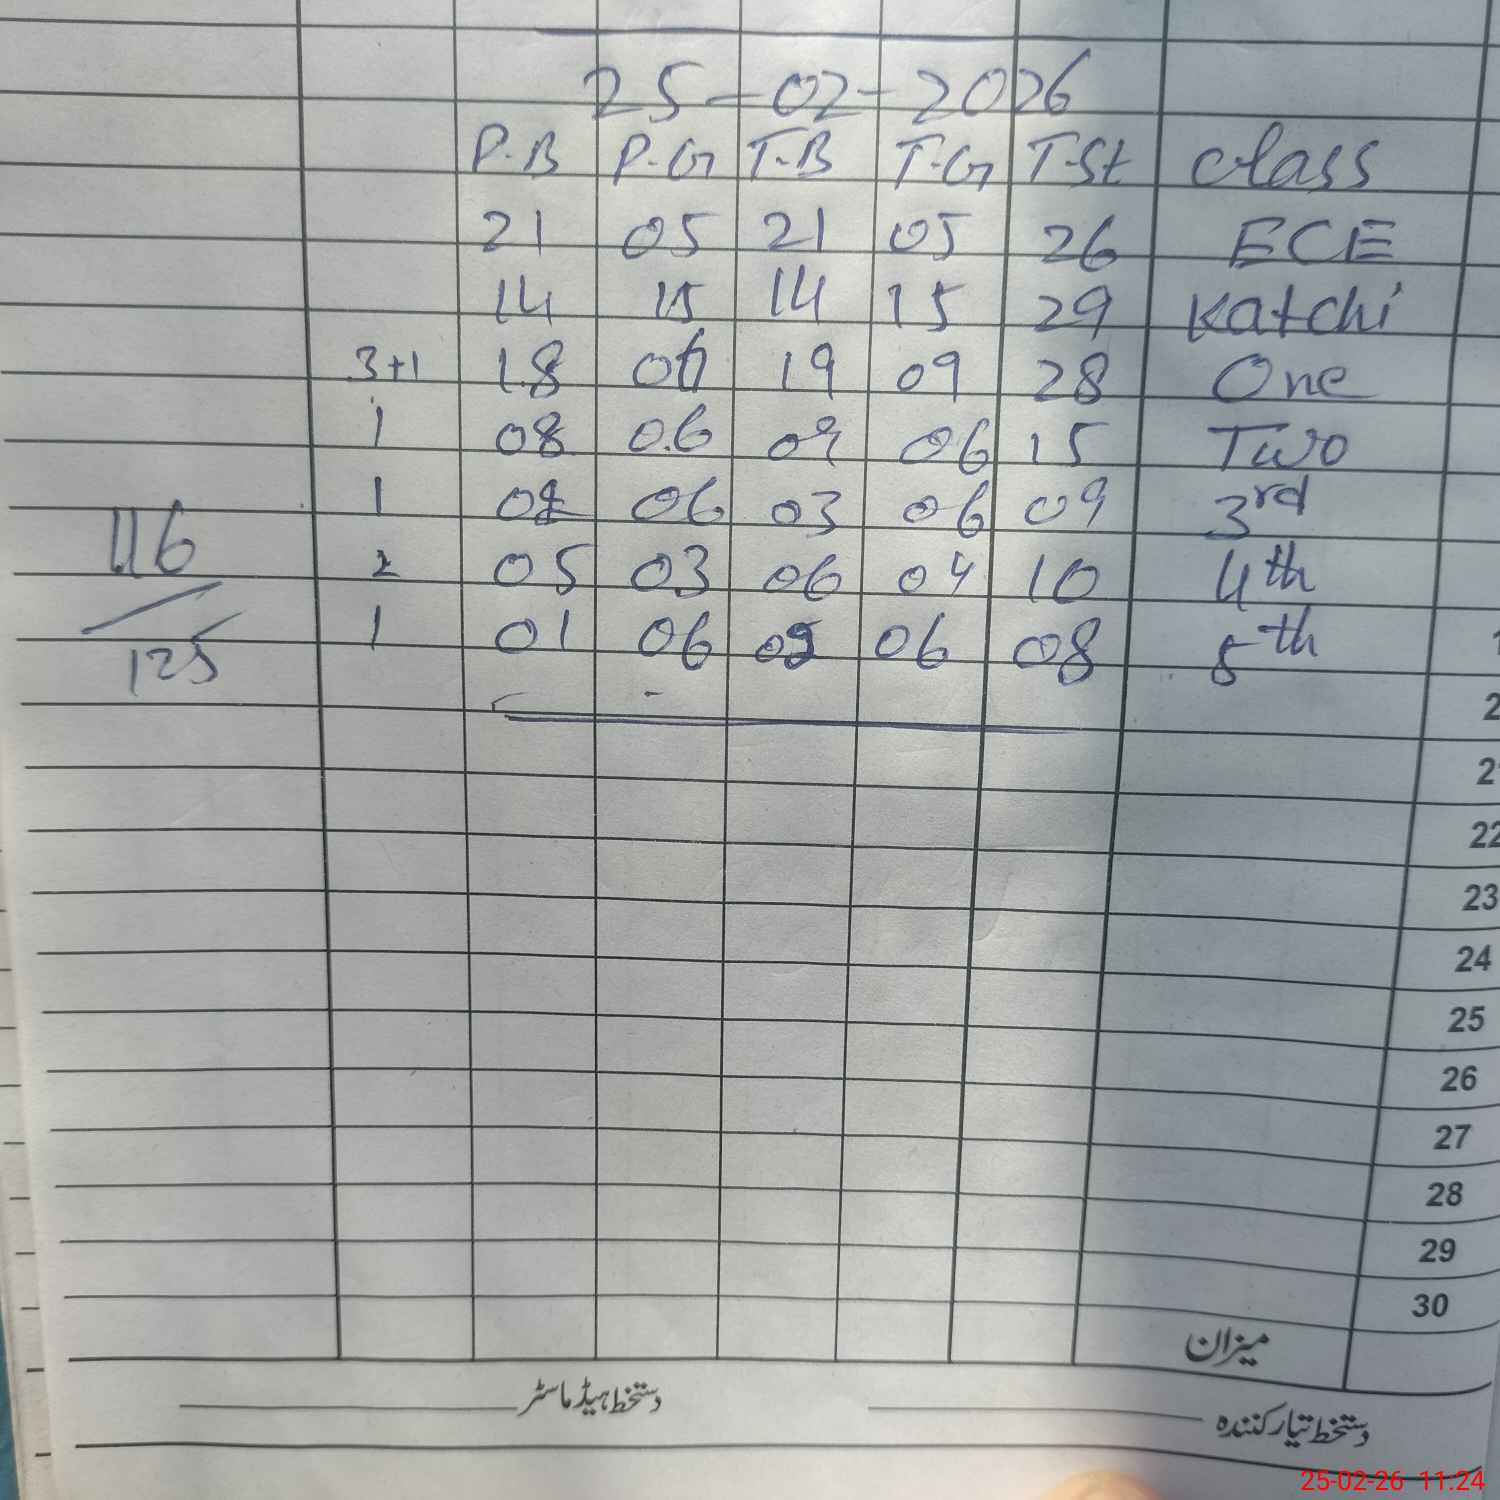 25-02-2026
P.B P.G T.B T.G T.St class
21 05 21 05 26 ECE
14 15 14 15 29 Katchi
3+1 18 06 19 09 28 One
1 08 06 09 06 15 Two
1 02 06 03 06 09 3rd
2 05 03 06 04 10 4th
1 01 06 02 06 08 5th
116
125
1
2
21
22
23
24
25
26
27
28
29
30
میزان
دستخط ہیڈ ماسٹر
دستخط تیار کنندہ
25-02-26 11:24